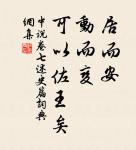 居而安
動而变
可以佐王矣
中说卷七述史篇詞典
網集